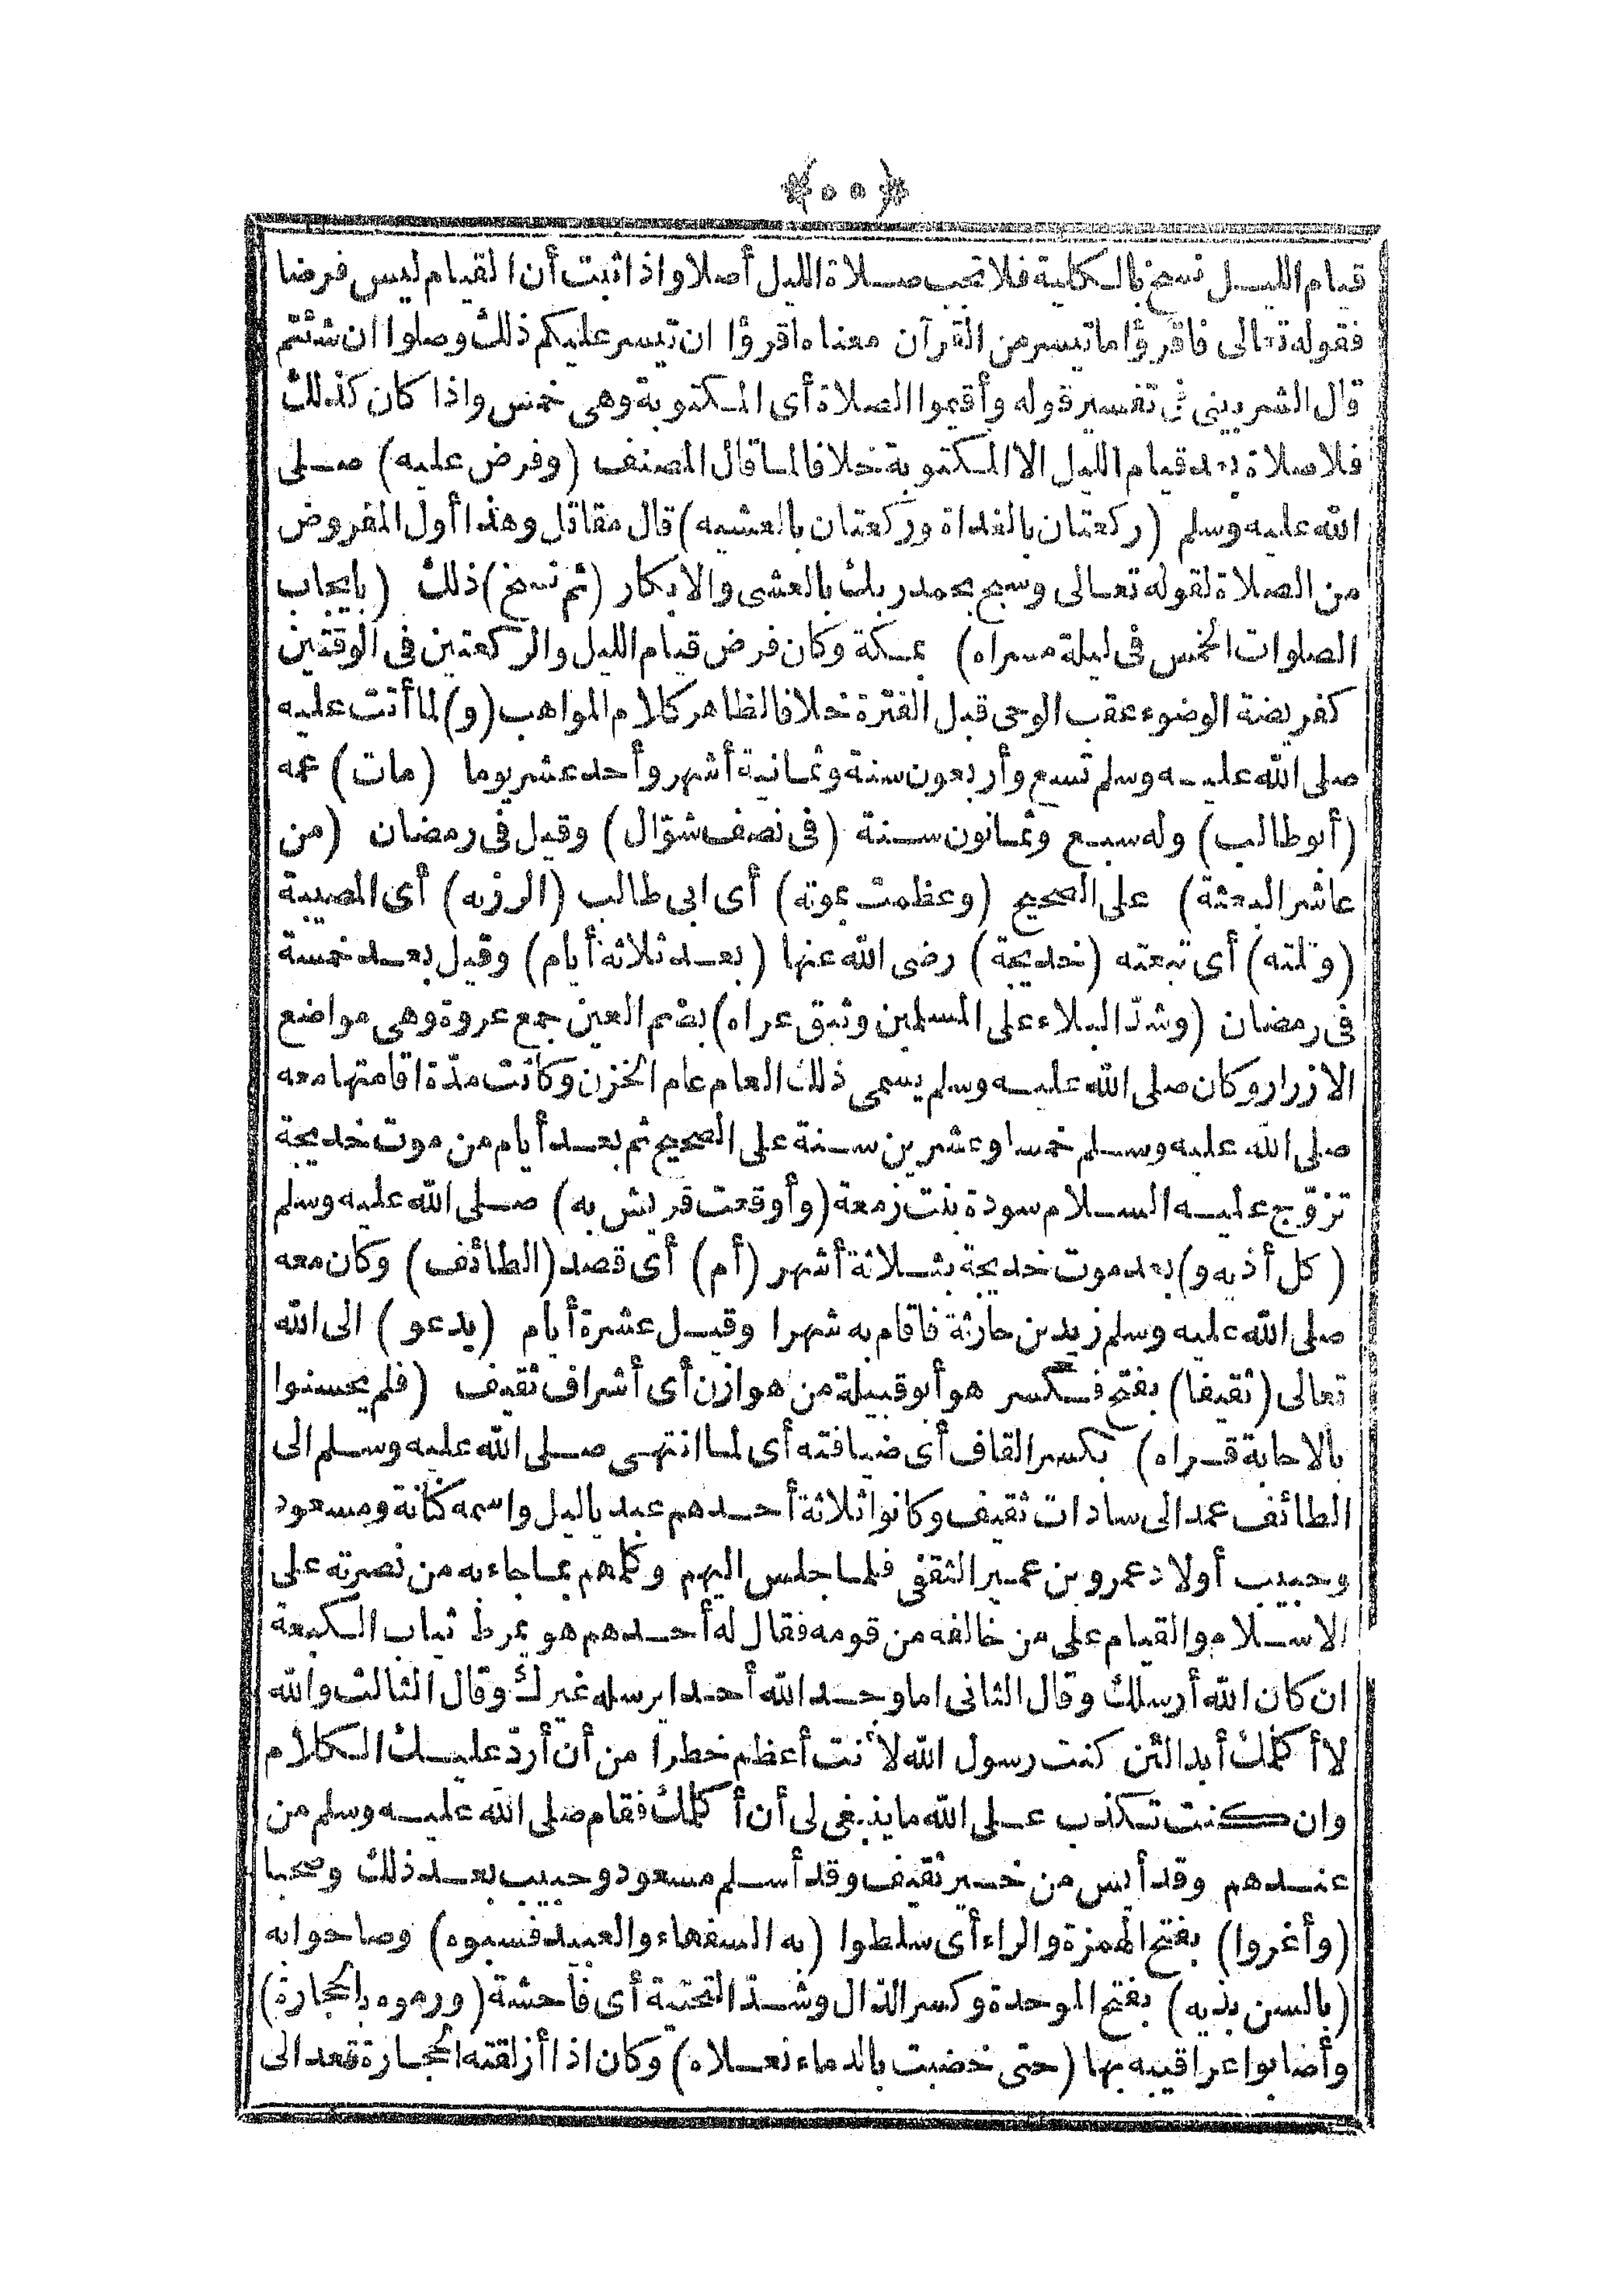 ﴿٥٥﴾
قيام الليل نسخ بالكلية فلا تجب صلاة الليل أصلا واذا ثبت أن القيام ليس فرضا
فقوله تعالى فاقرؤا ما تيسر من القرآن معناه اقرؤا ان تيسر عليكم ذلك وصلوا ان شئتم
قال الشربينى فى تفسير قوله وأقيموا الصلاة أى المكتوبة وهى خمس واذا كان كذلك
فلا صلاة بعد قيام الليل الا المكتوبة خلافا لما قال المصنف (وفرض عليه) صلى
الله عليه وسلم (ركعتان بالغداة وركعتان بالعشيه) قال مقاتل وهذا أول المفروض
من الصلاة لقوله تعالى وسبح بحمد ربك بالعشى والابكار (ثم نسخ) ذلك (بايجاب
الصلوات الخمس فى ليلة مسراه) بمكة وكان فرض قيام الليل والركعتين فى الوقتين
كفريضة الوضوء عقب الوحى قبل الفترة خلافا لظاهر كلام المواهب (و) لما أتت عليه
صلى الله عليه وسلم تسع وأربعون سنة وثمانية أشهر وأحد عشر يوما (مات) عمه
(أبو طالب) وله سبع وثمانون سنة (فى نصف شوّال) وقيل فى رمضان (من
عاشر البعثة) على الصحيح (وعظمت بموته) أى ابى طالب (الرزيه) أى المصيبة
(وتلته) أى تبعته (خديجة) رضى الله عنها (بعد ثلاثة أيام) وقيل بعد خمسة
فى رمضان (وشدّ البلاء على المسلمين وثيق عراه) بضم العين جمع عروة وهى مواضع
الازرار وكان صلى الله عليه وسلم يسمى ذلك العام عام الحزن وكانت مدّة اقامتها معه
صلى الله عليه وسلم خمسا وعشرين سنة على الصحيح ثم بعد أيام من موت خديجة
تزوّج عليه السلام سودة بنت زمعة (وأوقعت قريش به) صلى الله عليه وسلم
(كل أذيه و) بعد موت خديجة بثلاثة أشهر (أم) أى قصد (الطائف) وكان معه
صلى الله عليه وسلم زيد بن حارثة فاقام به شهرا وقيل عشرة أيام (يدعو) الى الله
تعالى (ثقيفا) بفتح فكسر هو أبو قبيلة من هوازن أى أشراف ثقيف (فلم يحسنوا
بالاجابة قراه) بكسر القاف أى ضيافته أى لما انتهى صلى الله عليه وسلم الى
الطائف عمد الى سادات ثقيف وكانوا ثلاثة أحدهم عبد ياليل واسمه كنانة ومسعود
وحبيب أولاد عمرو بن عمير الثقفى فلما جلس اليهم وكلمهم بما جاء به من نصرته على
الاسلام والقيام على من خالفه من قومه فقال له أحدهم هو يمرط ثياب الكعبة
ان كان الله أرسلك وقال الثانى اما وجد الله أحدا يرسله غيرك وقال الثالث والله
لا أكلمك أبدا لئن كنت رسول الله لأنت أعظم خطرا من أن أردّ عليك الكلام
وان كنت تكذب على الله ما ينبغى لى أن أكلمك فقام صلى الله عليه وسلم من
عندهم وقد أيس من خير ثقيف وقد أسلم مسعود وحبيب بعد ذلك وصحبا
(وأغروا) بفتح الهمزة والراء أى سلطوا (به السفهاء والعبيد فسبوه) وصاحوا به
(بالسن بذيه) بفتح الموحدة وكسر الذال وشدّ التحتية أى فاحشة (ورموه بالحجارة)
وأصابوا عراقيبه بها (حتى خضبت بالدماء نعلاه) وكان اذا أزلقته الحجارة قعد الى